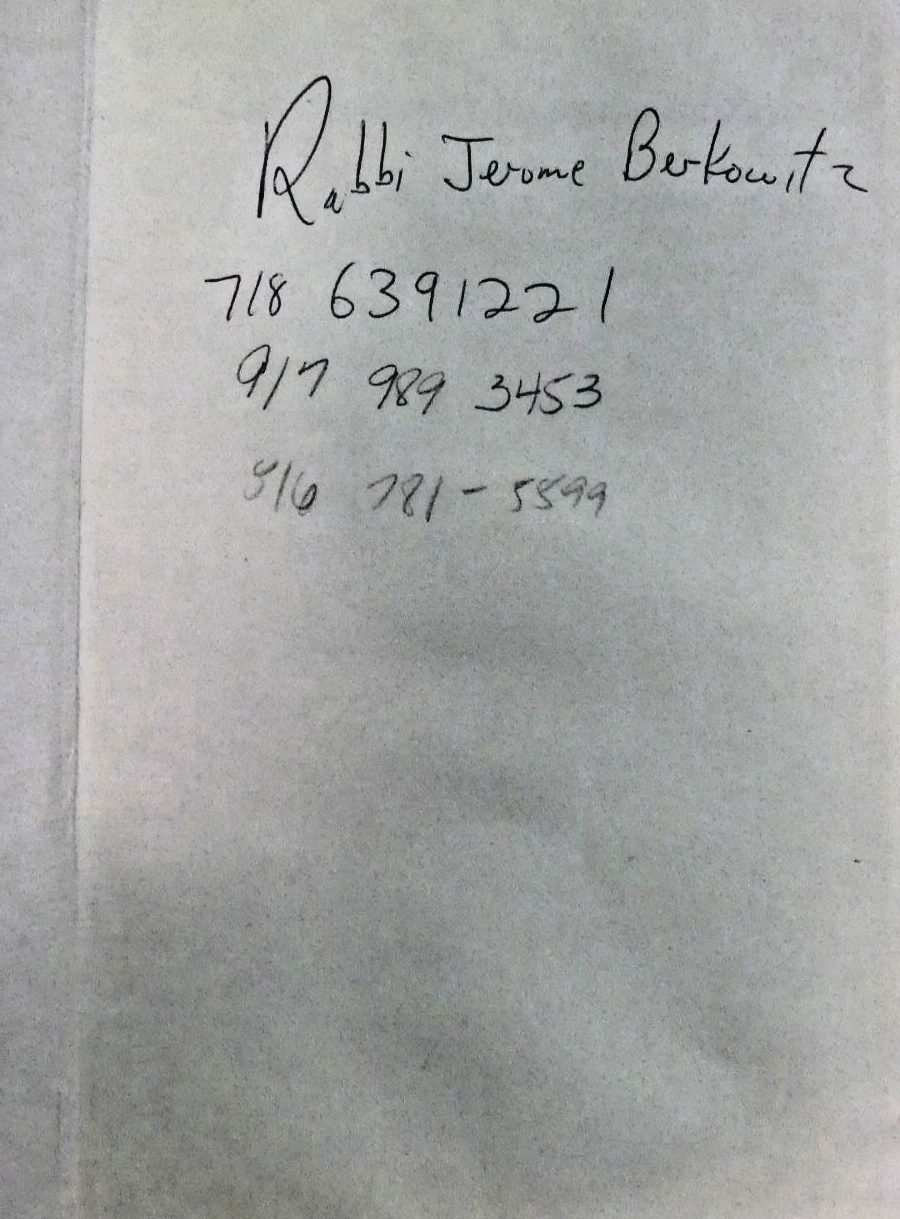 Rabbi Jerome Berkowitz
718 6391221
917 989 3453
516 781-5599